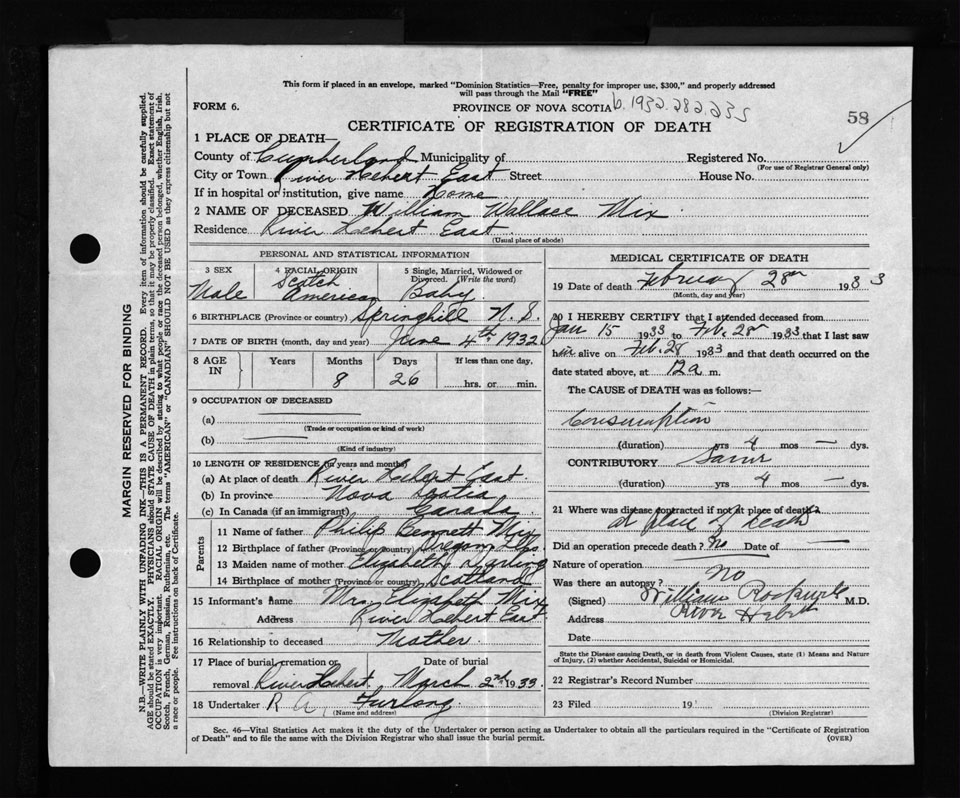 This form if placed in an envelope, marked "Dominion Statistics—Free, penalty for improper use, $300," and properly addressed
will pass through the Mail "FREE"
FORM 6. PROVINCE OF NOVA SCOTIA b. 1932.282.235
CERTIFICATE OF REGISTRATION OF DEATH 58
1 PLACE OF DEATH—
County of Cumberland Municipality of Registered No.
(For use of Registrar General only)
City or Town River Hebert East Street House No.
If in hospital or institution, give name Home
2 NAME OF DECEASED William Wallace Mix
Residence River Hebert East
(Usual place of abode)
MARGIN RESERVED FOR BINDING
N.B.—WRITE PLAINLY WITH UNFADING INK—THIS IS A PERMANENT RECORD. Every item of information should be carefully supplied.
AGE should be stated EXACTLY. PHYSICIANS should STATE CAUSE OF DEATH in plain terms, so that it may be properly classified. Exact statement of
OCCUPATION is very important. RACIAL ORIGIN will be described by stating to what people or race the deceased person belonged, whether English, Irish,
Scotch, French, German, Russian, Ruthenian, etc. The terms "AMERICAN" or "CANADIAN" SHOULD NOT BE USED as they express citizenship but not
a race or people. See instructions on back of Certificate.
PERSONAL AND STATISTICAL INFORMATION
3 SEX 4 RACIAL ORIGIN 5 Single, Married, Widowed or
Divorced. (Write the word)
Male Scotch American Baby
6 BIRTHPLACE (Province or country) Springhill N.S.
7 DATE OF BIRTH (month, day and year) June 4th 1932
8 AGE IN Years Months Days If less than one day,
8 26 hrs. or min.
9 OCCUPATION OF DECEASED
(a)
(Trade or occupation or kind of work)
(b)
(Kind of industry)
10 LENGTH OF RESIDENCE (in years and months)
(a) At place of death River Hebert East
(b) In province Nova Scotia
(c) In Canada (if an immigrant) Canada
Parents
11 Name of father Philip Bennett Mix
12 Birthplace of father (Province or Country) Oregon
13 Maiden name of mother Elizabeth
14 Birthplace of mother (Province or country) Scotland
15 Informant's Name Mrs. Elizabeth Mix
Address River Hebert East
16 Relationship to deceased Mother
17 Place of burial, cremation or removal River Hebert Date of burial March 2nd 1933
18 Undertaker R A, Furlong
(Name and address)
MEDICAL CERTIFICATE OF DEATH
19 Date of death February 28th 1933
(Month, day and year)
20 I HEREBY CERTIFY that I attended deceased from
Jan 15 1933 to Feb. 28th 1933 that I last saw
him alive on Feb. 28 1933 and that death occurred on the
date stated above, at 12 a m.
The CAUSE of DEATH was as follows:
Consumption
(duration) yrs 4 mos — dys.
CONTRIBUTORY Same
(duration) yrs 4 mos — dys.
21 Where was disease contracted if not at place of death?
at place of death
Did an operation precede death? No Date of —
Nature of operation
Was there an autopsy? No
(Signed) William M.D.
Address River Hebert
Date
State the Disease causing Death, or in death from Violent Causes, state (1) Means and Nature
of Injury, (2) whether Accidental, Suicidal or Homicidal.
22 Registrar's Record Number
23 Filed 19
(Division Registrar)
Sec. 46—Vital Statistics Act makes it the duty of the Undertaker or person acting as Undertaker to obtain all the particulars required in the "Certificate of Registration
of Death" and to file the same with the Division Registrar who shall issue the burial permit.
(OVER)